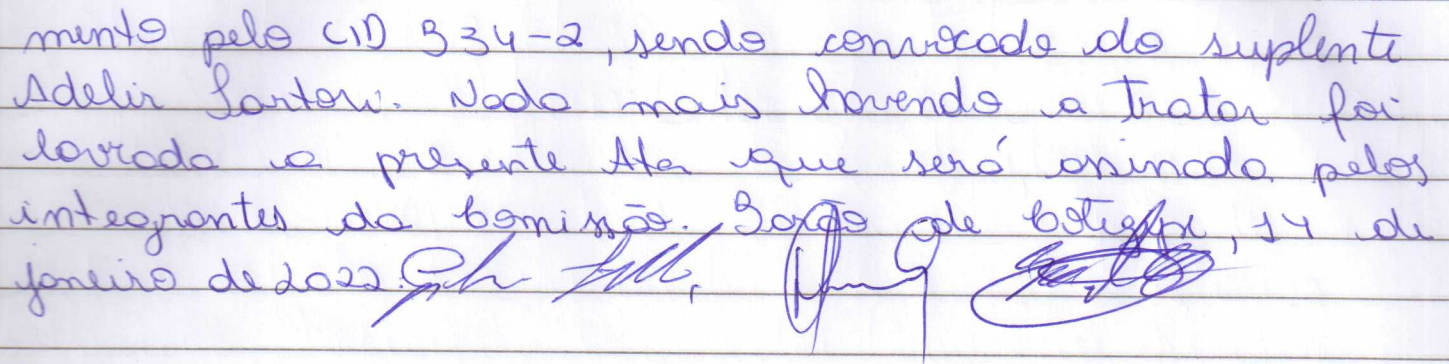 mento pelo CID 334-2, sendo convocado do suplente
Adelir Sartori. Nada mais havendo a tratar foi
lavrada a presente Ata que será assinada pelos
integrantes da Comissão. Barão de Cotegipe, 14 de
janeiro de 2022.